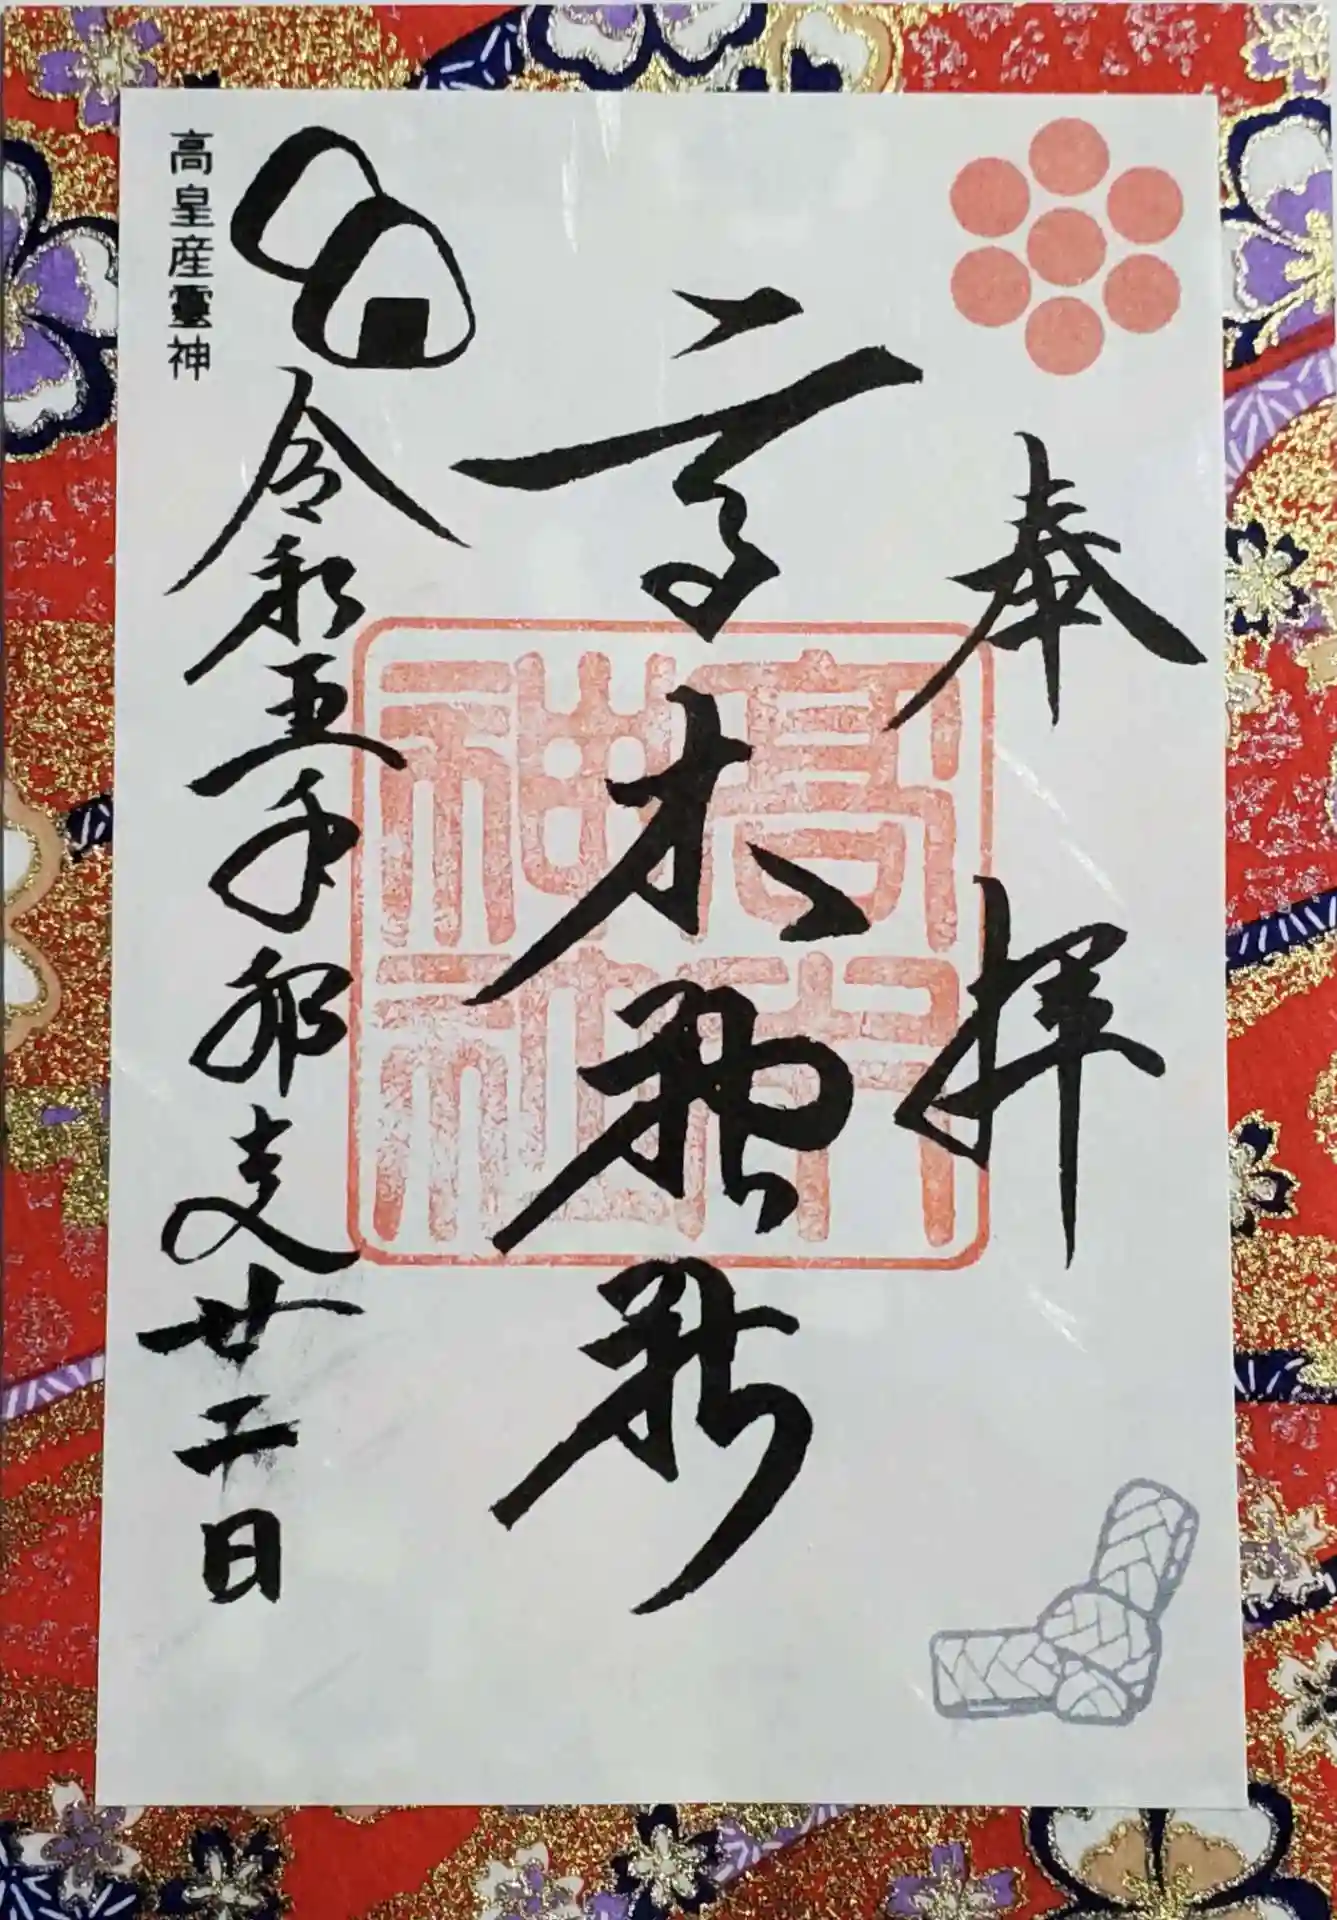 奉拝
高木神社
高木
神社
令和五年師走廿二日
高皇産霊神